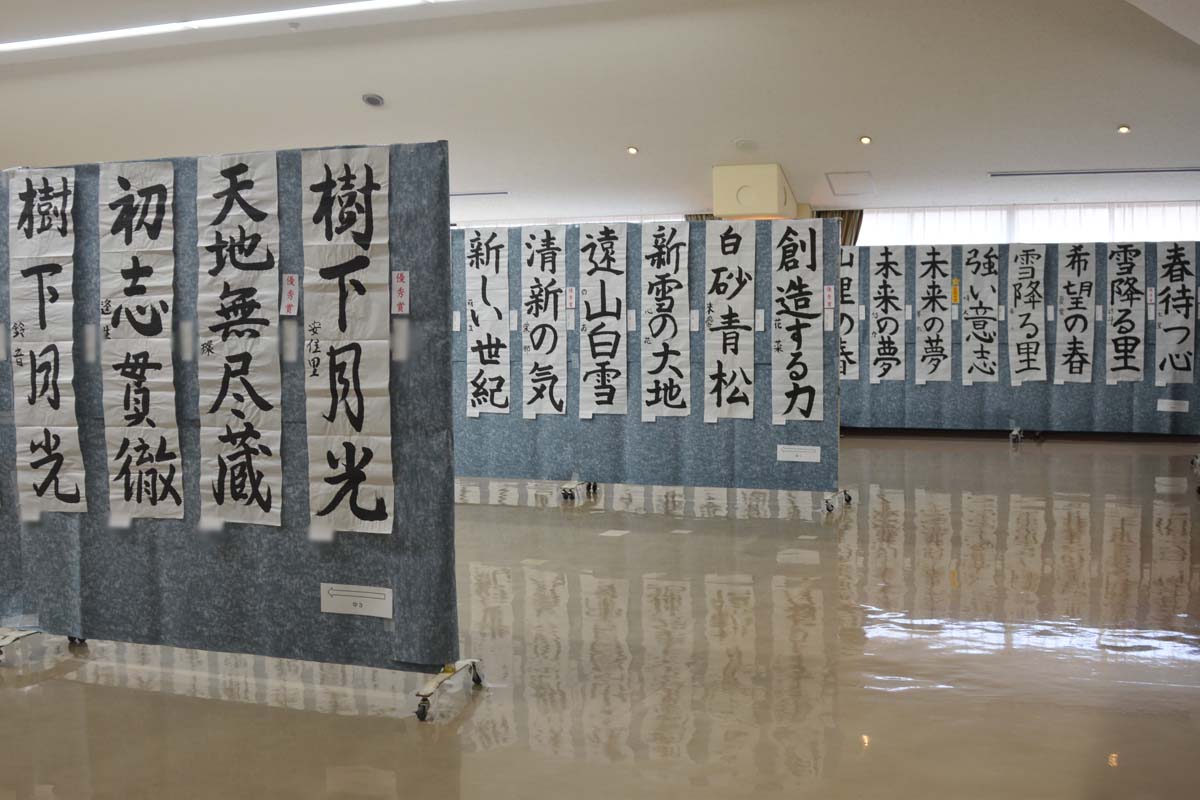 樹下月光
鈴音
初志貫徹
天地無尽蔵
優秀賞
樹下月光
安佳里
優秀賞
中3
新しい世紀
清新の気
遠山白雪
のあ
新雪の大地
心花
白砂青松
創造する力
花菜
山里の春
未来の夢
未来の夢
強い意志
雪降る里
希望の春
雪降る里
春待つ心